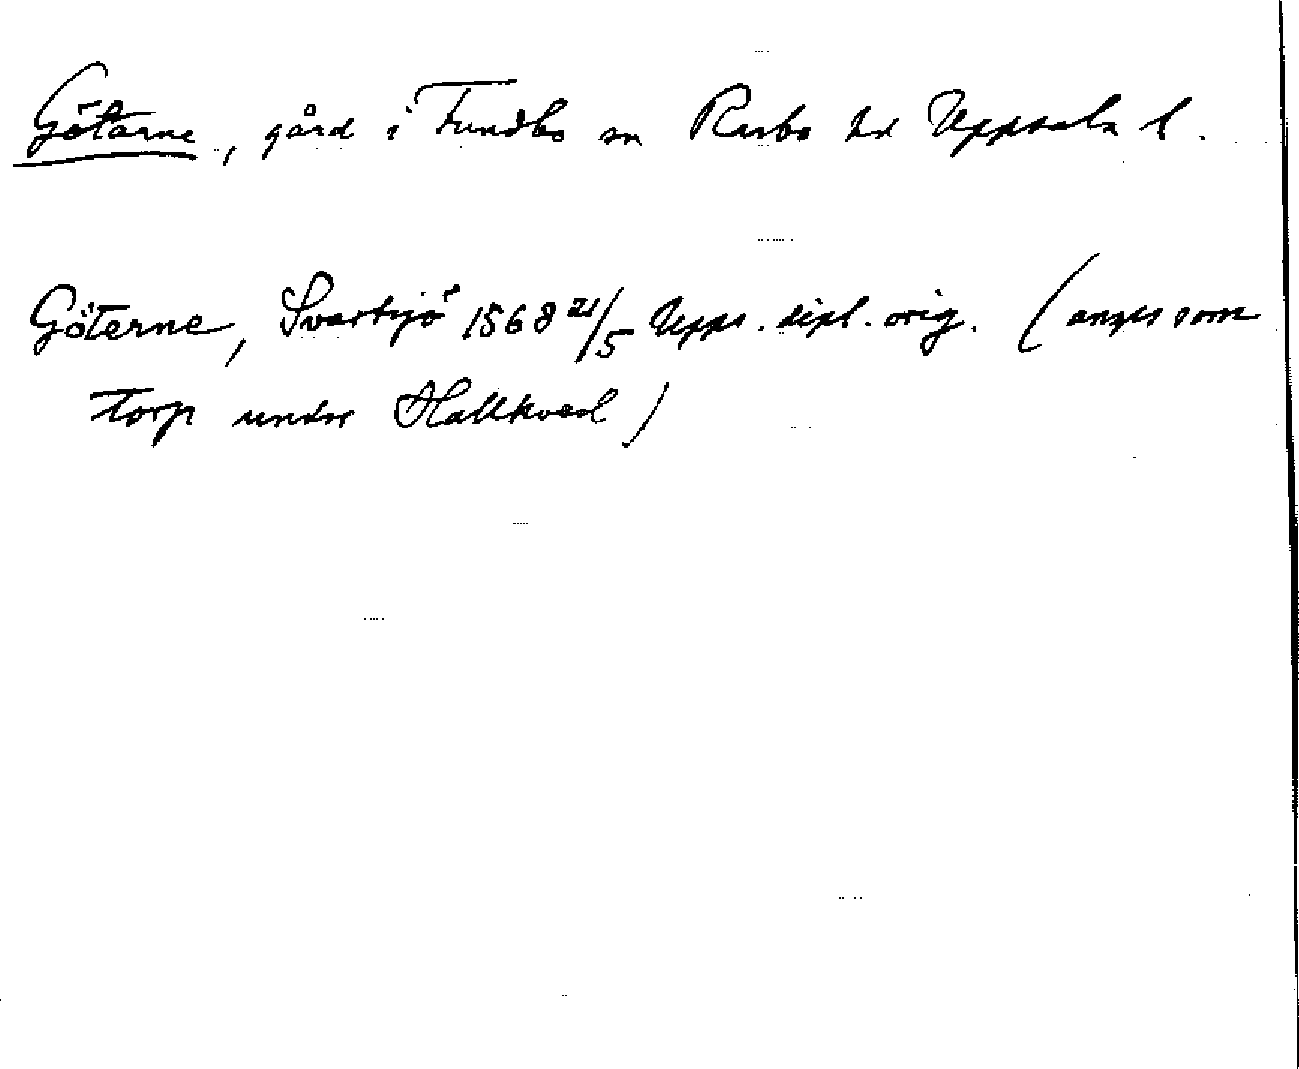 Götarne, gård i Funbo sn Rasbo hd Uppsala l.
Göterne, Svartsjö 1568 21/5 Upps. dipl. orig. (anges som
torp under Hallkved)